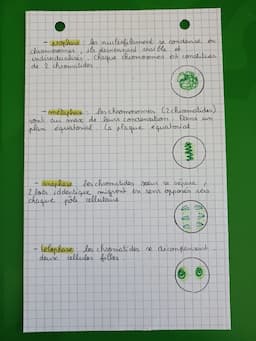 - prophase : les nucléofilament se condense en
chromosomes, ils deviennent visible et
individualisés. Chaque chromosomes est constitués
de 2 chromatides
- métaphase : les chromosomes (2 chromatides)
sont au max de leurs condensation. Dans un
plan equatorial la plaque equatorial.
- anaphase : les chromatides sœur se sépare :
2 lots identique, migrent en sens opposés vers
chaque pôle cellulaire
- telophase : les chromatides se décompensent
deux cellules filles